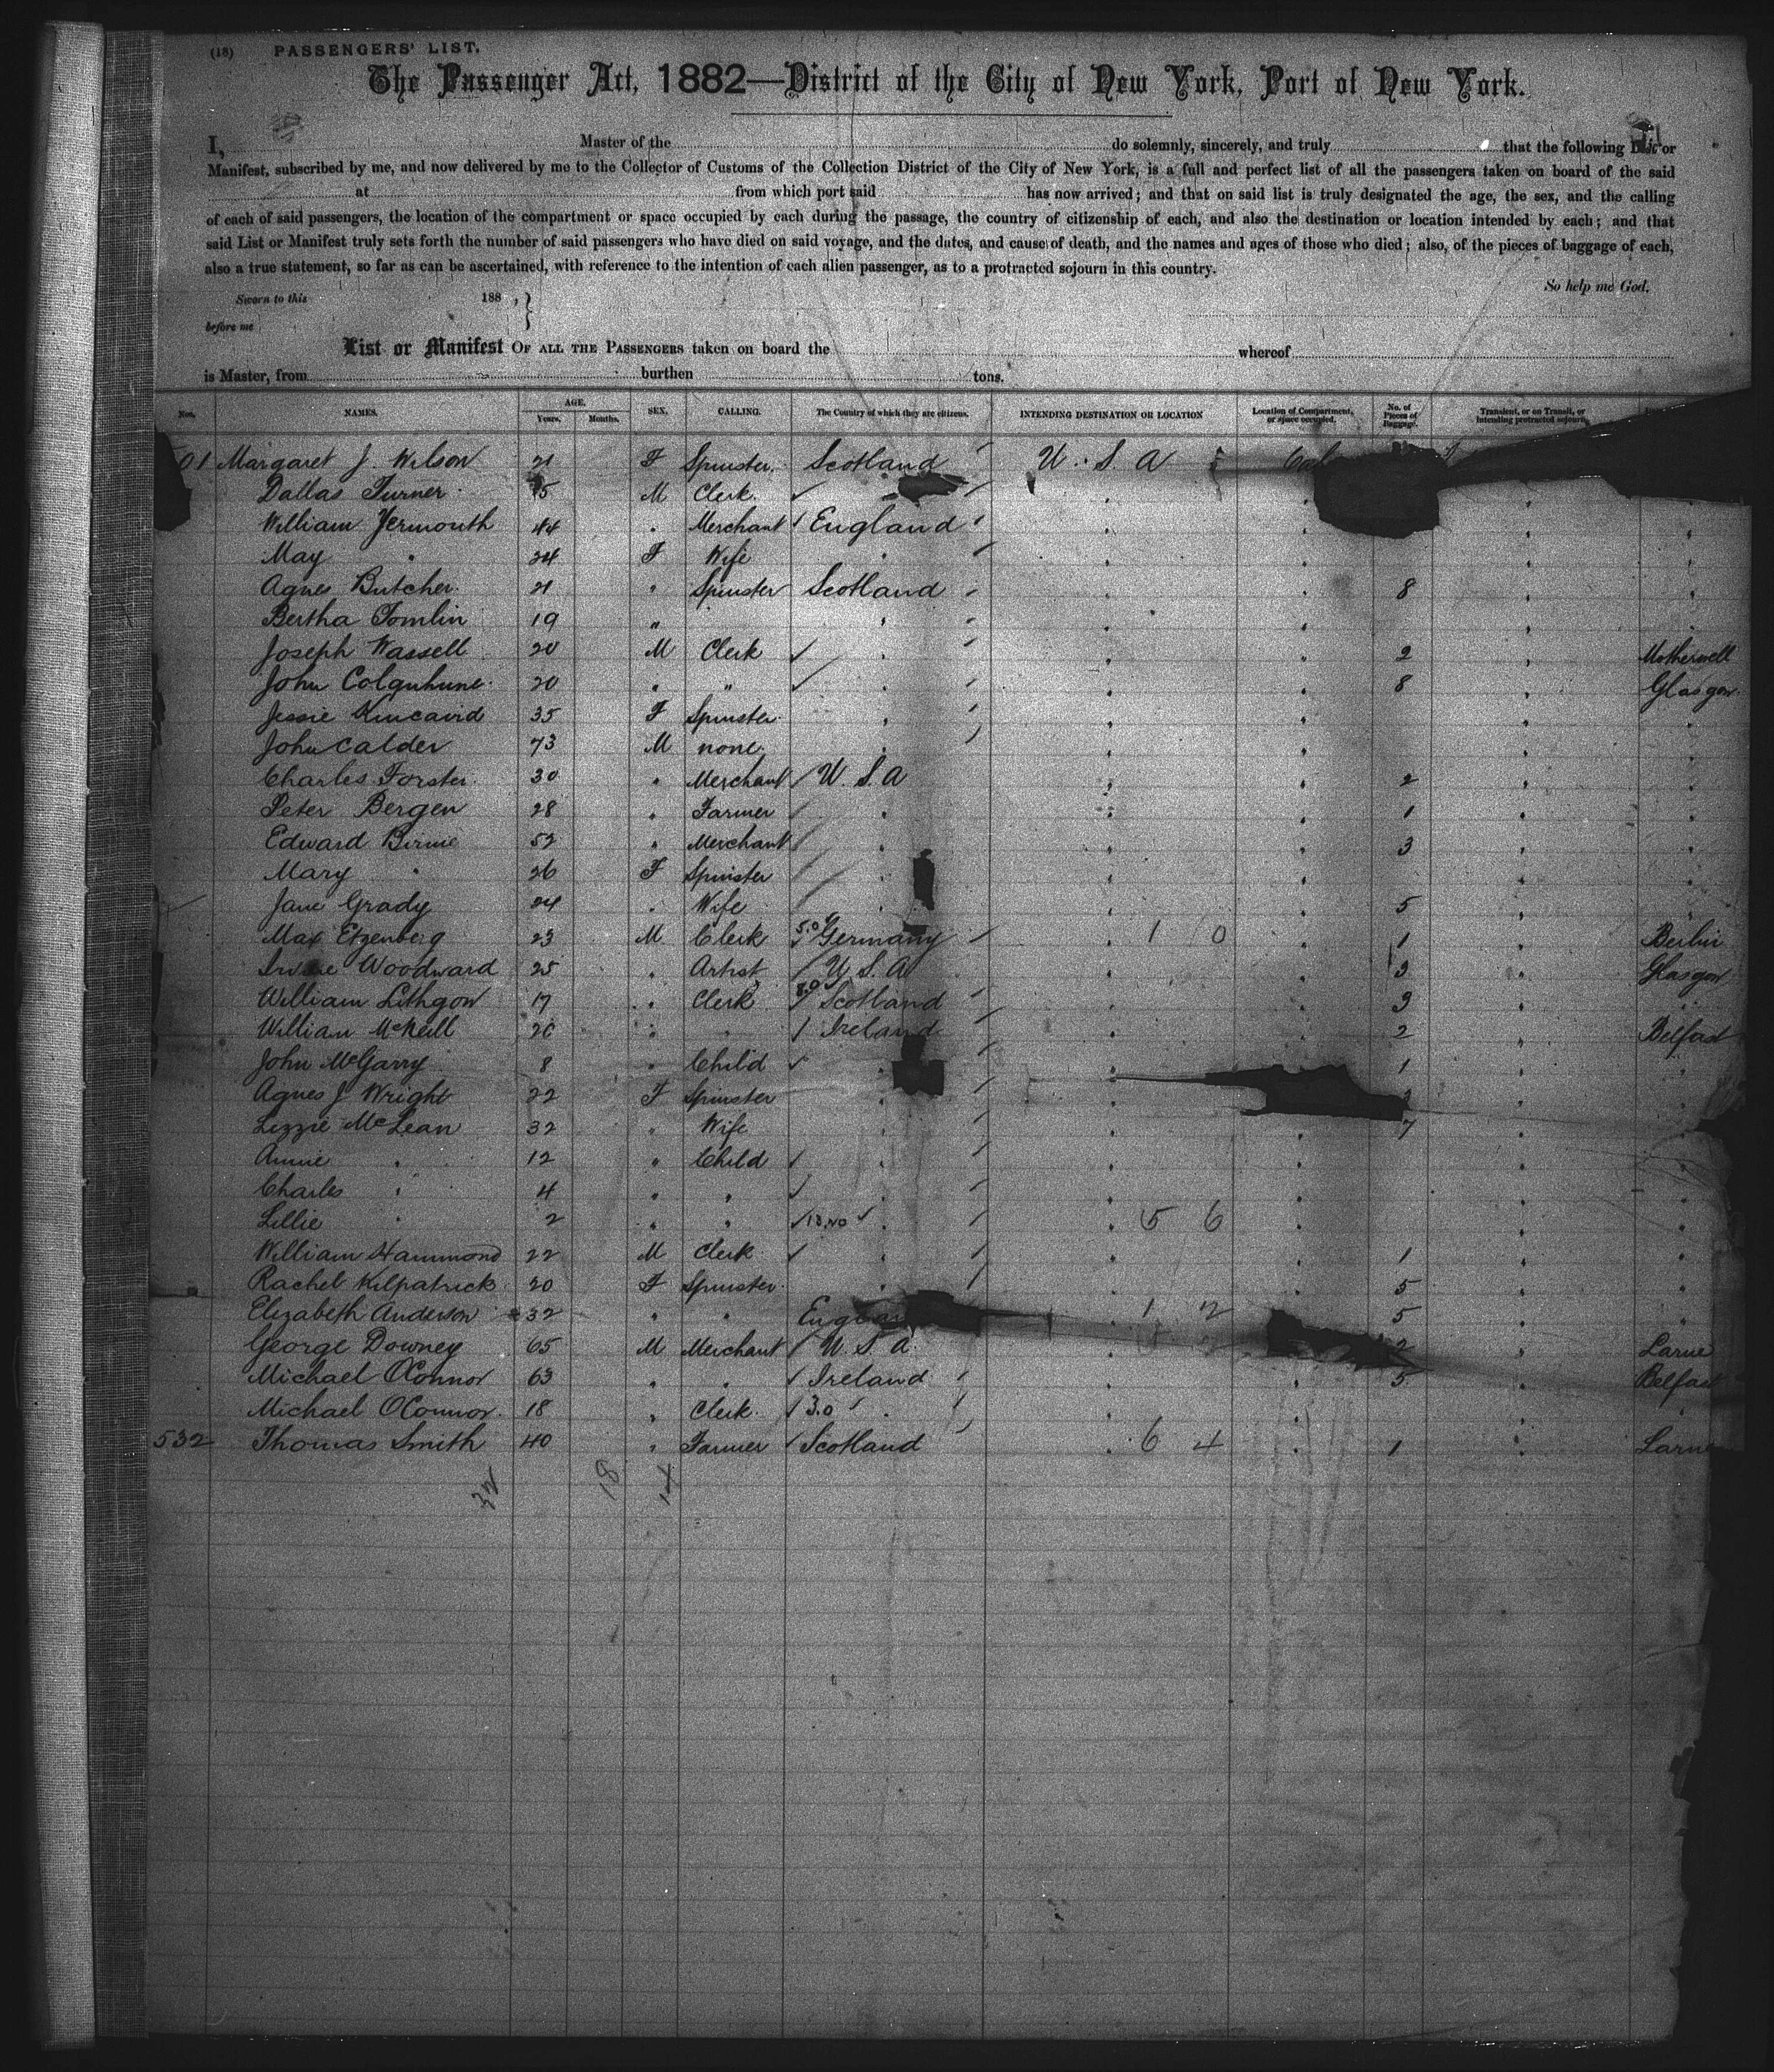 (18) PASSENGERS' LIST.
The Passenger Act, 1882—District of the City of New York, Port of New York.
I, Master of the do solemnly, sincerely, and truly that the following List or
Manifest, subscribed by me, and now delivered by me to the Collector of Customs of the Collection District of the City of New York, is a full and perfect list of all the passengers taken on board of the said
at from which port said has now arrived; and that on said list is truly designated the age, the sex, and the calling
of each of said passengers, the location of the compartment or space occupied by each during the passage, the country of citizenship of each, and also the destination or location intended by each; and that
said List or Manifest truly sets forth the number of said passengers who have died on said voyage, and the dates, and cause of death, and the names and ages of those who died; also, of the pieces of baggage of each,
also a true statement, so far as can be ascertained, with reference to the intention of each alien passenger, as to a protracted sojourn in this country.
So help me God.
Sworn to this 188 , }
before me
List or Manifest OF ALL THE PASSENGERS taken on board the whereof
is Master, from burthen tons.
Nos. NAMES. AGE. Years. Months. SEX. CALLING. The Country of which they are citizens. INTENDING DESTINATION OR LOCATION Location of Compartment, or space occupied. No. of Pieces of Baggage. Transient, or on Transit, or Intending protracted sojourn
01 Margaret J. Wilson 21 F Spinster. Scotland U. S. A
Dallas Turner 5 M Clerk. "
William Yermouth 44 " Merchant England "
May " 24 F Wife " "
Agnes Butcher 21 " Spinster Scotland " " 8 " "
Bertha Tomlin 19 " " " " " "
Joseph Wassell 20 M Clerk " " " 2 " Motherwell
John Colquhune 20 " " " " " 8 " Glasgow
Jessie Kincavid 35 F Spinster " " " " "
John Calder 73 M none. " " " " "
Charles Forster 30 " Merchant U. S. A " " 2 " "
Peter Bergen 28 " Farmer " " " 1 " "
Edward Birnie 52 " Merchant " " " 3 " "
Mary " 26 F Spinster " " " " "
Jane Grady 24 " Wife " " " 5 " "
Max Etzenberg 23 M Clerk 5.0 Germany " 1 0 " 1 " Berlin
Woodward 25 " Artist U. S. A " " 3 " Glasgow
William Lithgow 17 " Clerk 8.0 Scotland " " 3 " "
William McNeill 20 " " Ireland " " 2 " Belfast
John McGarry 8 " Child " " " 1 " "
Agnes J Wright 22 F Spinster " " "
Lizzie McLean 32 " Wife " " " 7 " "
Annie " 12 " Child " " " " "
Charles " 4 " " " " " " "
Lillie " 2 " " " " 5 6 " " "
William Hammond 22 M Clerk " " " 1 " "
Rachel Kilpatrick 20 F Spinster " " " 5 " "
Elizabeth Anderson 32 " " Englan " 1 2 5 " "
George Downey 65 M Merchant U. S. A. " 2 " Larne
Michael OConnor 63 " " Ireland " " 5 " Belfast
Michael OConnor 18 " Clerk 3.0 " " " " "
532 Thomas Smith 40 " Farmer Scotland " 6 4 " 1 " Larne
32 18 14